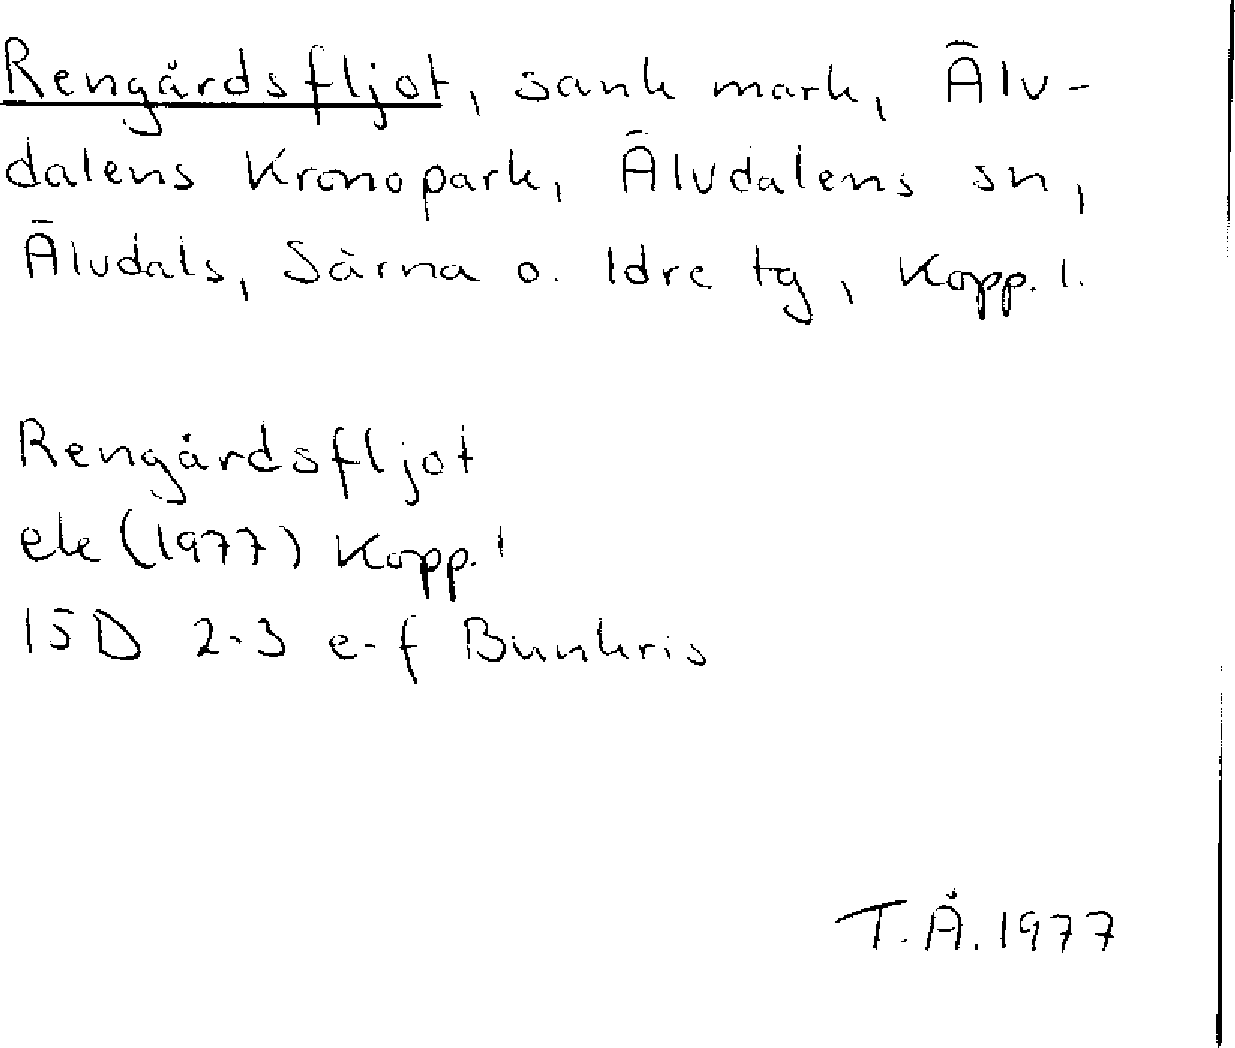 Rengårdsfljot, sank mark, Älv-
dalens Kronopark, Älvdalens sn,
Älvdals, Särna o. Idre tg, Kopp. l.
Rengårdsfljot
ek (1977) Kopp. l
15D 2-3 e-f Bunkris
T.Å. 1977